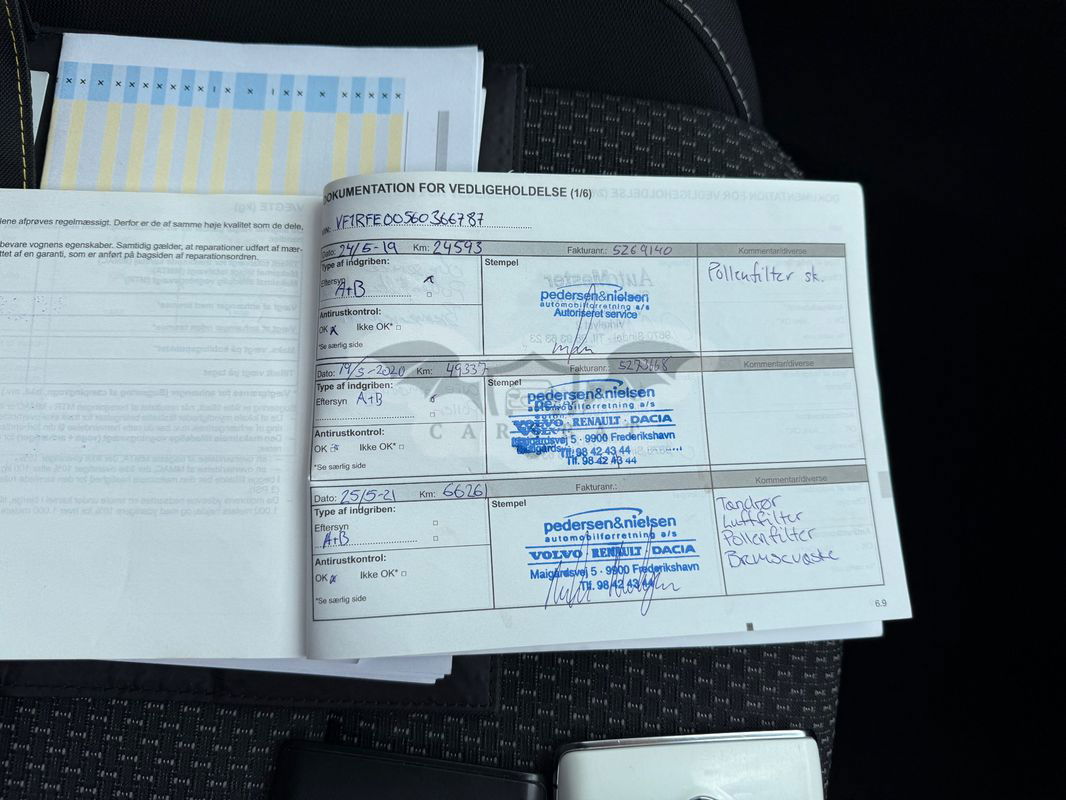 DOKUMENTATION FOR VEDLIGEHOLDELSE (1/6)
VIN: VF1RFE00560366787
Dato: 24/5-19 Km: 24593 Fakturanr.: 5269140 Kommentar/diverse
Type af indgriben:
Stempel
Pollenfilter sk.
Eftersyn
A+B
pedersen&nielsen
automobilforretning a/s
Autoriseret service
Antirustkontrol:
OK x Ikke OK*
*Se særlig side
Dato: 19/5-2020 Km: 49337 Fakturanr.: 5273668 Kommentar/diverse
Type af indgriben:
Stempel
Eftersyn A+B
pedersen&nielsen
automobilforretning a/s
VOLVO RENAULT DACIA
Antirustkontrol:
Maigårdsvej 5 · 9900 Frederikshavn
OK Ikke OK*
Tlf. 98 42 43 44
*Se særlig side
CAR
Dato: 25/5-21 Km: 66261 Fakturanr.: Kommentar/diverse
Type af indgriben:
Stempel
Tandrør
Luftfilter
Pollenfilter
Bremsevæske
Eftersyn
A+B
pedersen&nielsen
automobilforretning a/s
VOLVO RENAULT DACIA
Antirustkontrol:
Maigårdsvej 5 · 9900 Frederikshavn
OK x Ikke OK*
Tlf. 98 42 43 44
*Se særlig side
6.9
lene afprøves regelmæssigt. Derfor er de af samme høje kvalitet som de dele,
bevare vognens egenskaber. Samtidig gælder, at reparationer udført af mær-
ttet af en garanti, som er anført på bagsiden af reparationsordren.